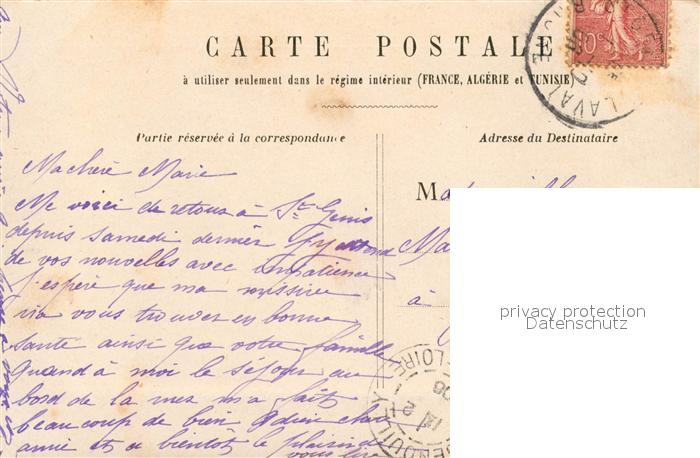 CARTE POSTALE
à utiliser seulement dans le régime intérieur (FRANCE, ALGÉRIE et TUNISIE)
Partie réservée à la correspondance
Ma chère Marie
Me voici de retour à St Genis
depuis samedi dernier J'y attend
de vos nouvelles avec impatience
J'espère que ma missive
va vous trouver en bonne
santé ainsi que votre famille
Quand à moi le séjour au
bord de la mer m'a fait
beaucoup de bien adieu cher
amie et a bientôt le plaisir de
vous lire
Adresse du Destinataire
Ma
à
10c
LAVAL
LOIRE
privacy protection
Datenschutz